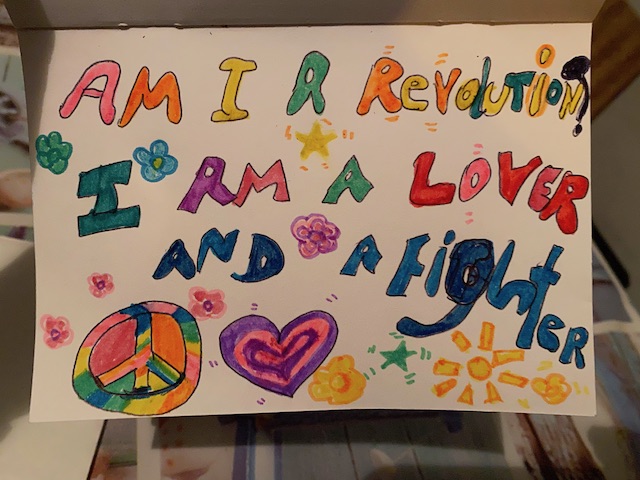 AM I A REVOLUTION?
I AM A LOVER
AND A FighTER